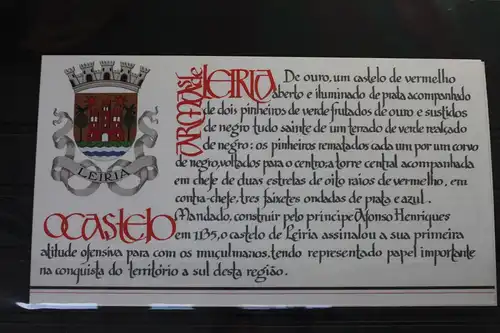 LEIRIA
ARMAS DE LEIRIA
De ouro, um castelo de vermelho
aberto e iluminado de prata acompanhado
de dois pinheiros de verde frutados de ouro e sustidos
de negro tudo sainte de um terrado de verde realçado
de negro: os pinheiros rematados cada um por um corvo
de negro, voltados para o centro: a torre central acompanhada
em chefe de duas estrelas de oito raios de vermelho, em
contra-chefe, tres faixetes ondadas de prata e azul.
O CASTELO
Mandado, construir pelo principe Afonso Henriques
em 1135, o castelo de Leiria assinalou a sua primeira
atitude ofensiva para com os muçulmanos, tendo representado papel importante
na conquista do território a sul desta região.